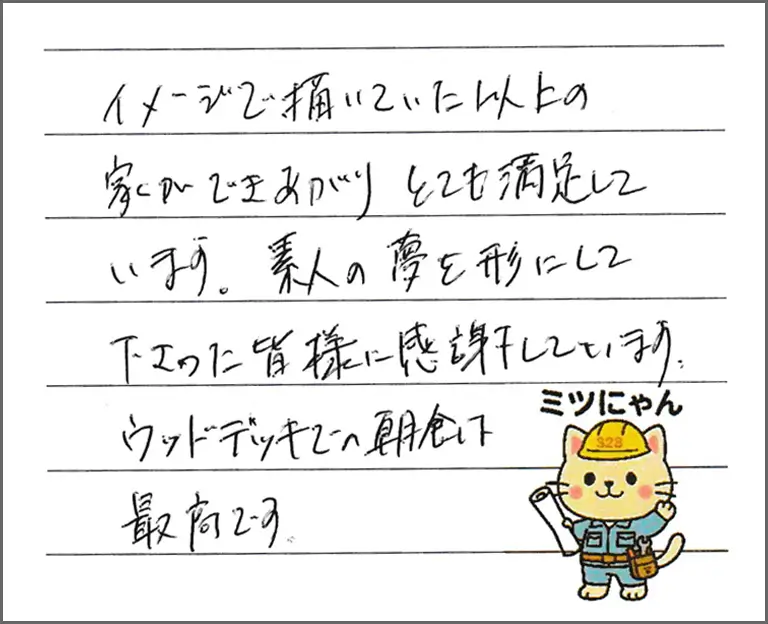 イメージで描いていた以上の
家ができあがり とても満足して
います。素人の夢を形にして
下さった皆様に感謝しています。
ウッドデッキでの朝食は
最高です。
ミツにゃん
328